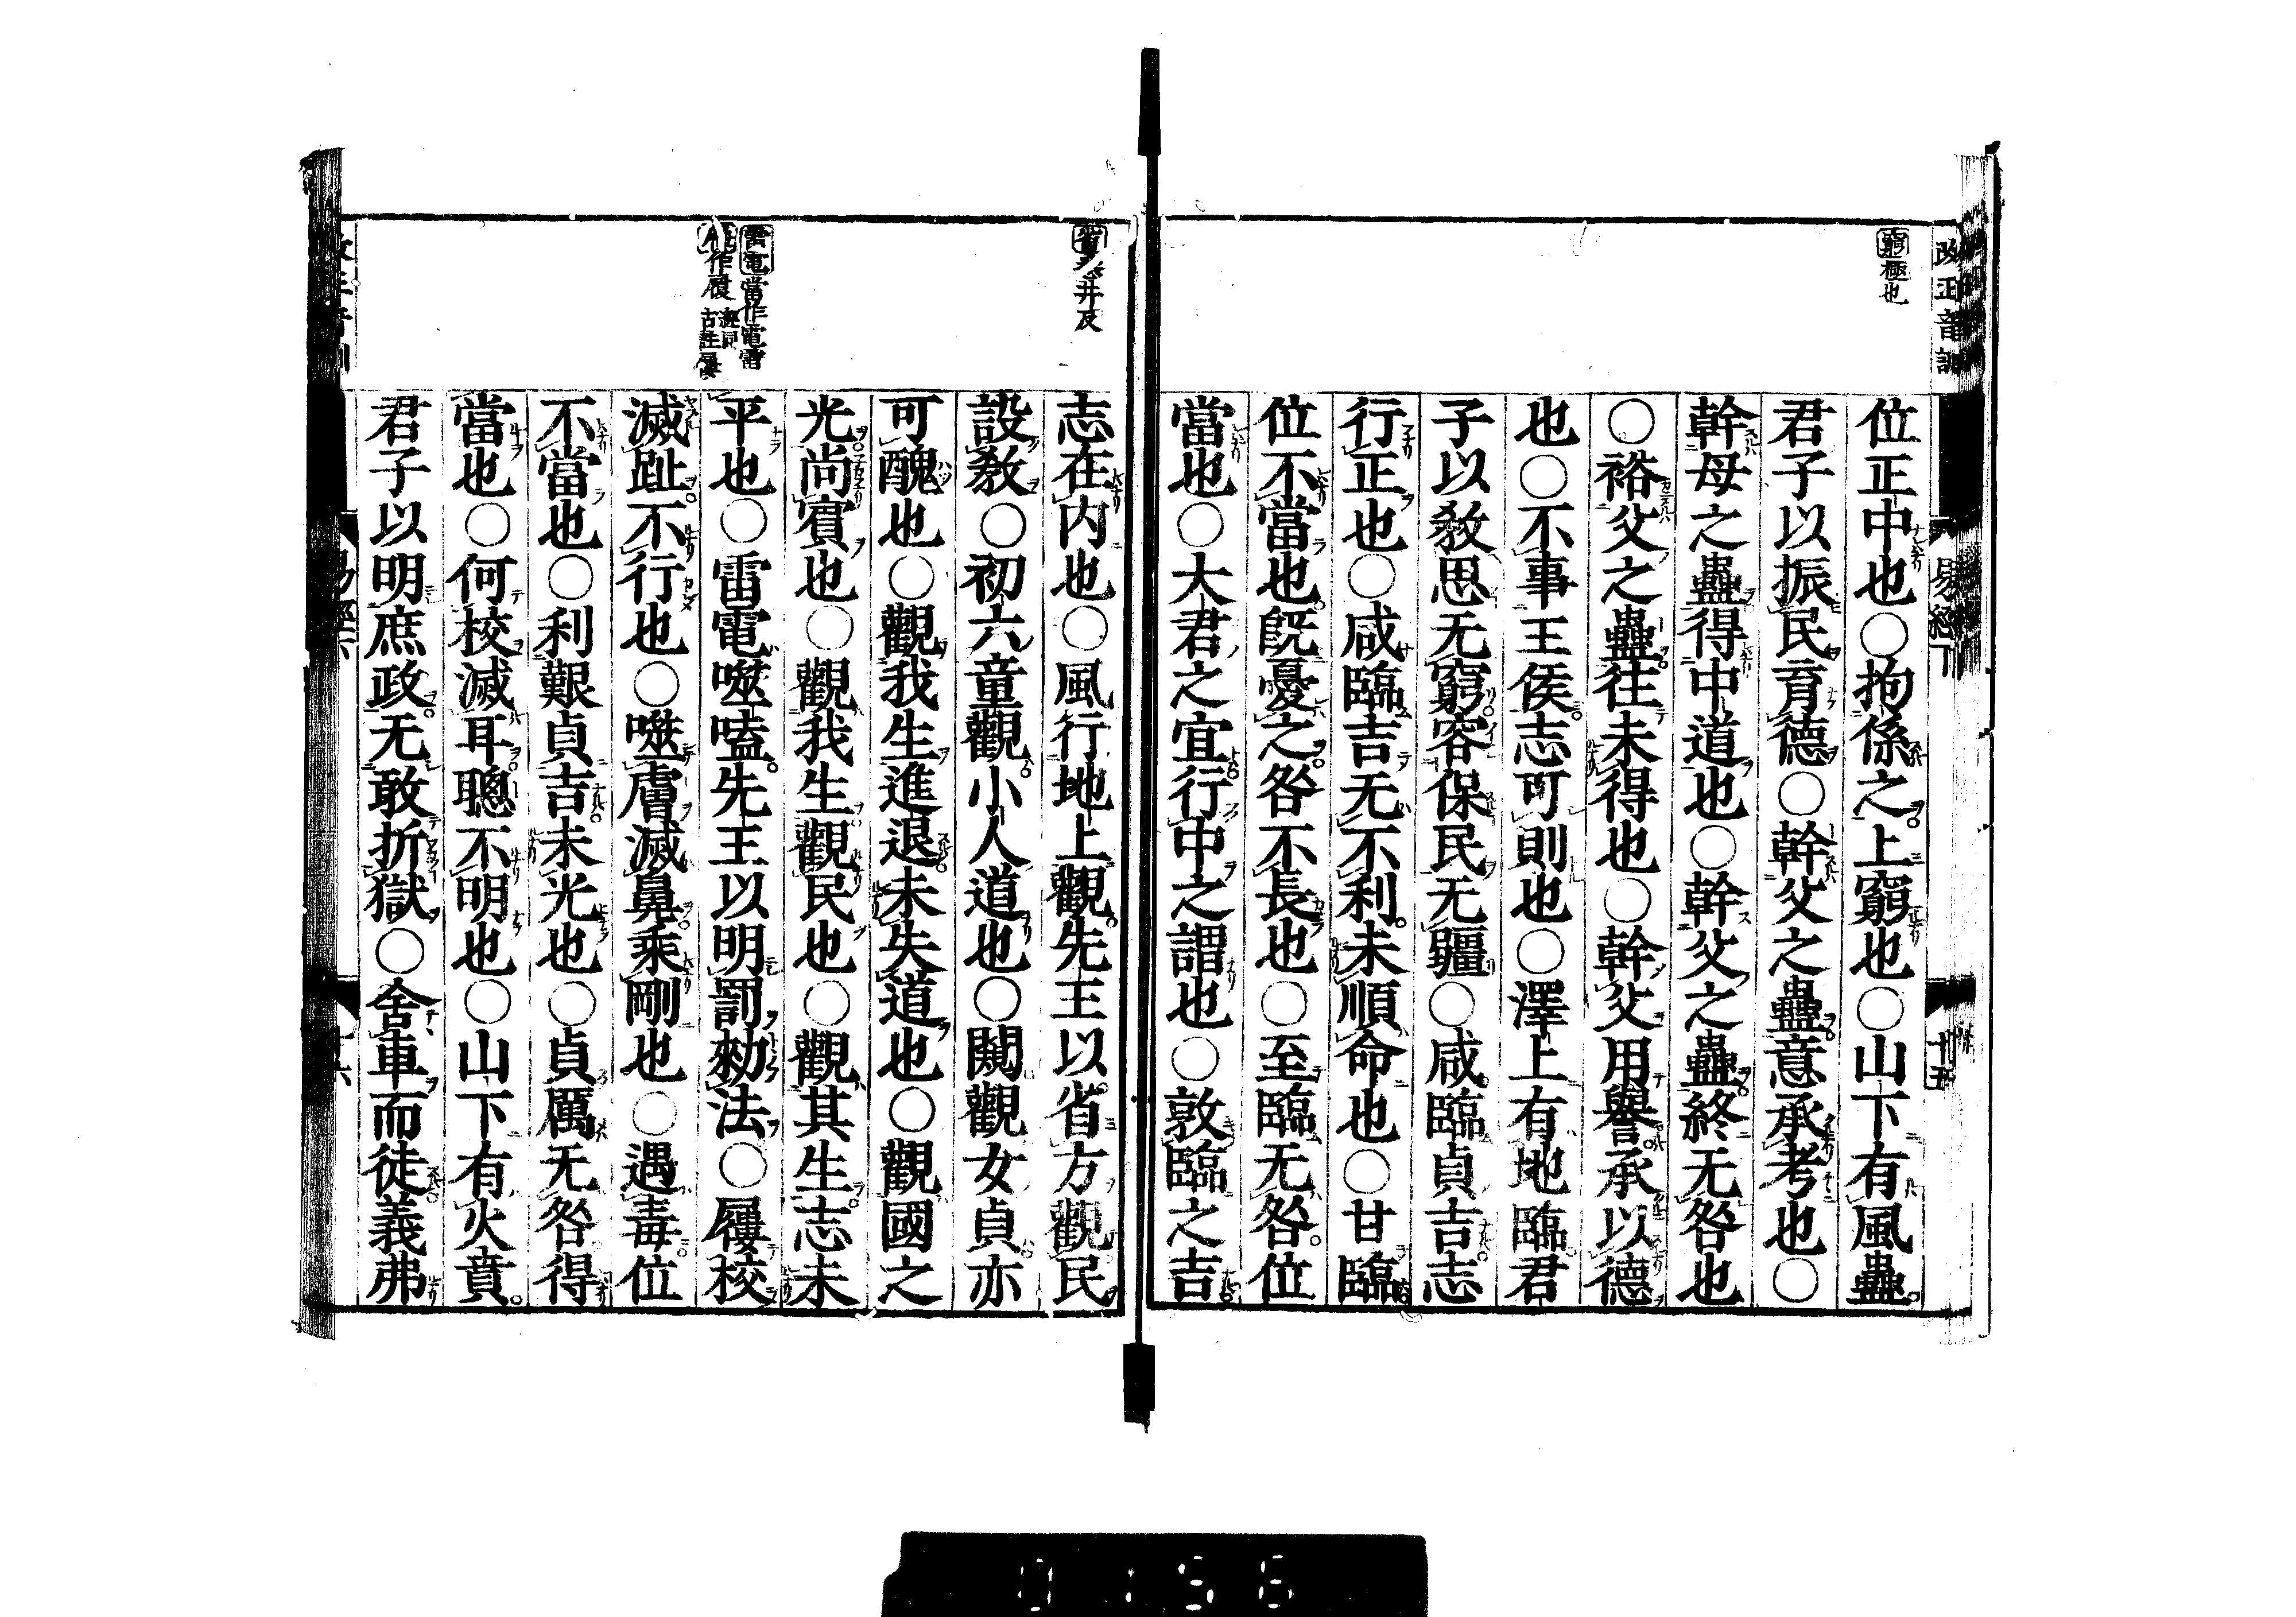 改正音訓
易經下
十五
窮極也
位正中也○拘係之上窮也○山下有風蠱
君子以振民育德○幹父之蠱意承考也○
幹母之蠱得中道也○幹父之蠱終无咎也
○裕父之蠱往未得也○幹父用譽承以德
也○不事王侯志可則也○澤上有地臨君
子以敎思无窮容保民无疆○咸臨貞吉志
行正也○咸臨吉无不利未順命也○甘臨
位不當也旣憂之咎不長也○至臨无咎位
當也○大君之宜行中之謂也○敦臨之吉
省悉井反
志在內也○風行地上觀先王以省方觀民
設敎○初六童觀小人道也○闚觀女貞亦
可醜也○觀我生進退未失道也○觀國之
光尚賓也○觀我生觀民也○觀其生志未
雷電當作電雷
作履
古註屨
平也○雷電噬嗑先王以明罰勑法○屨校
滅趾不行也○噬膚滅鼻乘剛也○遇毒位
不當也○利艱貞吉未光也○貞厲无咎得
當也○何校滅耳聰不明也○山下有火賁
君子以明庶政无敢折獄○舍車而徒義弗
0156